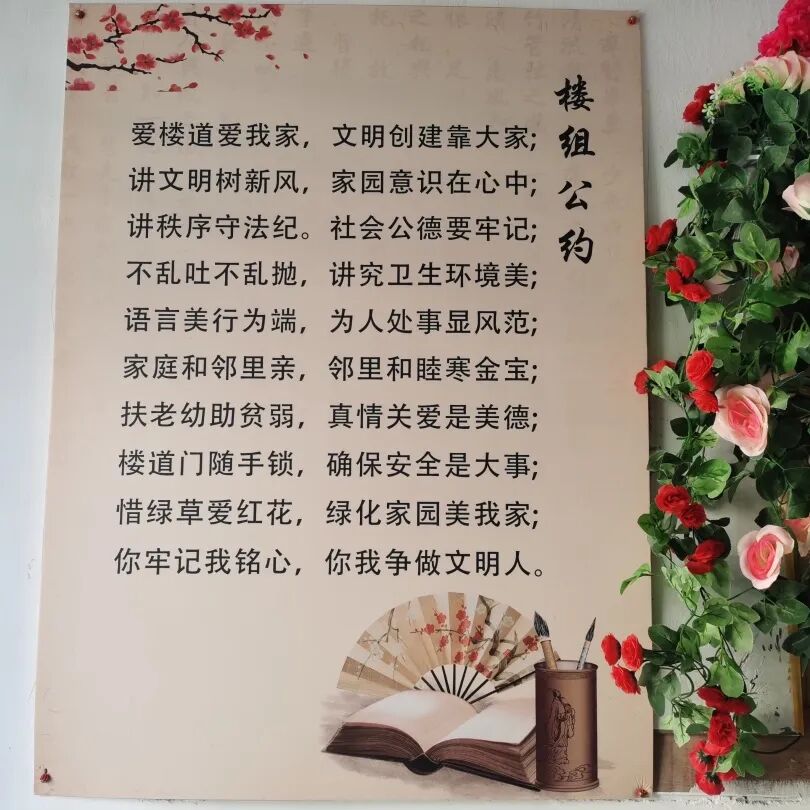 楼组公约
爱楼道爱我家，文明创建靠大家;
讲文明树新风，家园意识在心中;
讲秩序守法纪。社会公德要牢记;
不乱吐不乱抛，讲究卫生环境美;
语言美行为端，为人处事显风范;
家庭和邻里亲，邻里和睦寒金宝;
扶老幼助贫弱，真情关爱是美德;
楼道门随手锁，确保安全是大事;
惜绿草爱红花，绿化家园美我家;
你牢记我铭心，你我争做文明人。